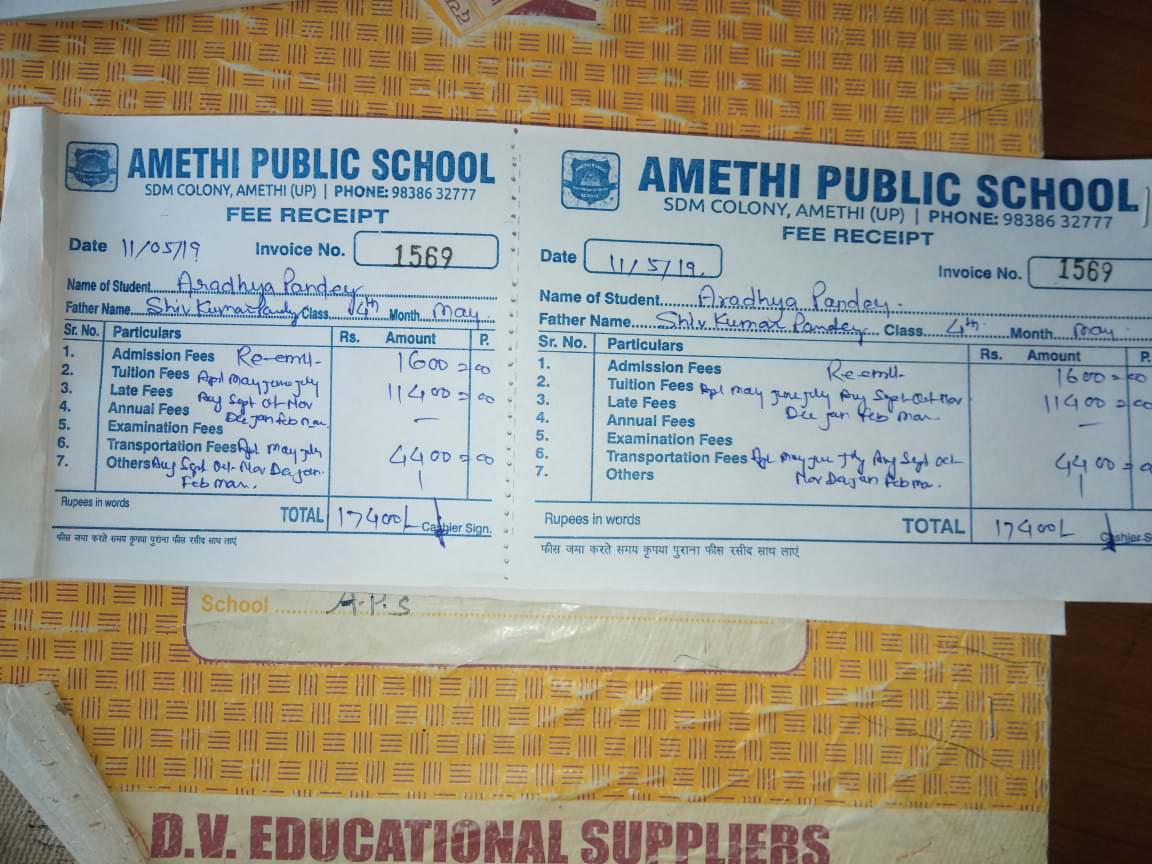 AMETHI PUBLIC SCHOOL
SDM COLONY, AMETHI (UP) | PHONE: 98386 32777
FEE RECEIPT
Date 11/05/19 Invoice No. 1569
Name of Student Aradhya Pandey
Father Name Shiv Kumar Pandey Class 4th Month May
Sr. No. Particulars Rs. Amount P.
1. Admission Fees Re-emll- 1600=00
2. Tuition Fees Apl May June July 11400=00
3. Late Fees Aug Sept Oct Nov
4. Annual Fees Dec Jan Feb Mar –
5. Examination Fees
6. Transportation Fees Apl May July 4400=00
7. Others Aug Sept Oct Nov De Jan
Feb mar.
Rupees in words
TOTAL 17400/- Cashier Sign.
फीस जमा करते समय कृपया पुराना फीस रसीद साथ लाएं
AMETHI PUBLIC SCHOOL
SDM COLONY, AMETHI (UP) | PHONE: 98386 32777
FEE RECEIPT
Date 11/5/19. Invoice No. 1569
Name of Student Aradhya Pandey.
Father Name Shiv Kumar Pandey Class 4th Month May
Sr. No. Particulars Rs. Amount P.
1. Admission Fees Re-emll- 1600=00
2. Tuition Fees Apl May June July Aug Sept Oct Nov 11400=00
3. Late Fees Dec Jan Feb Mar.
4. Annual Fees –
5. Examination Fees
6. Transportation Fees Apl May June July Aug Sept Oct 4400=
7. Others Nov De Jan Feb Ma.
Rupees in words
TOTAL 17400/- Cashier S
फीस जमा करते समय कृपया पुराना फीस रसीद साथ लाएं
School A.P.S
D.V. EDUCATIONAL SUPPLIERS